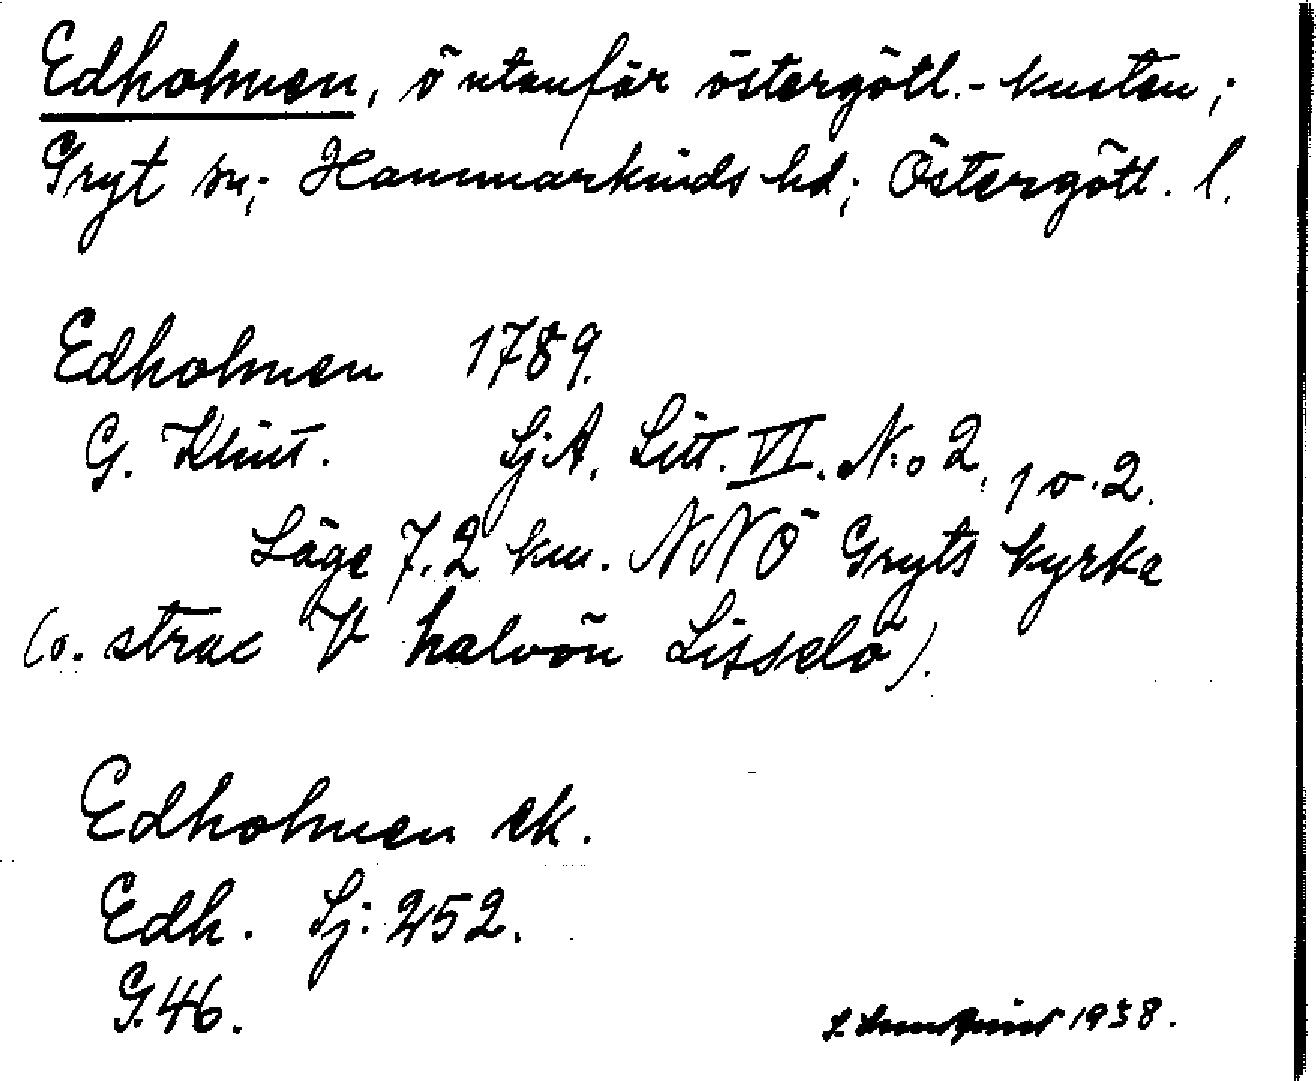 Edholmen, ö utanför östergötl.-kusten;
Gryt sn; Hammarkinds hd; Östergötl. l.
Edholmen 1789.
G. Klint. SjA. Litt. VI. N:o 2, 1 o. 2.
Läge 7.2 km. NNÖ Gryts kyrka
(o. strax V halvön Lisselö).
Edholmen ek.
Edh. Sj: 252.
G.46.
1938.